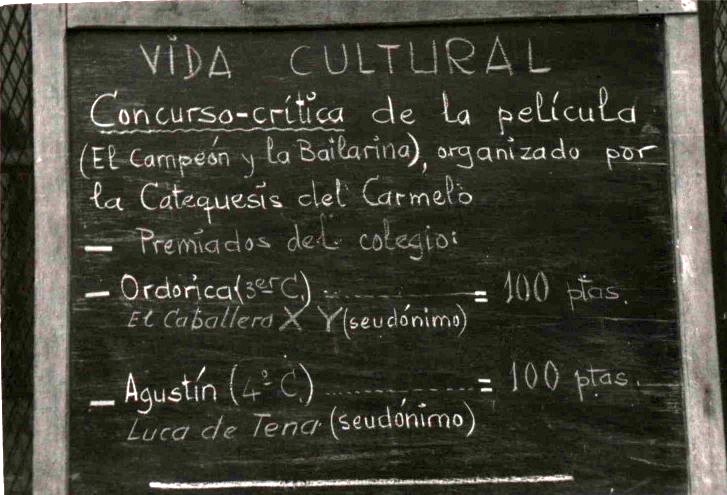 VIDA CULTURAL
Concurso-crítica de la película
(El Campeón y la Bailarina), organizado por
la Catequesis del Carmelo
— Premiados del colegio:
— Ordorica (3er C.) .............. = 100 ptas.
El Caballero X Y (seudónimo)
— Agustín (4º C.) .............. = 100 ptas.
Luca de Tena (seudónimo)